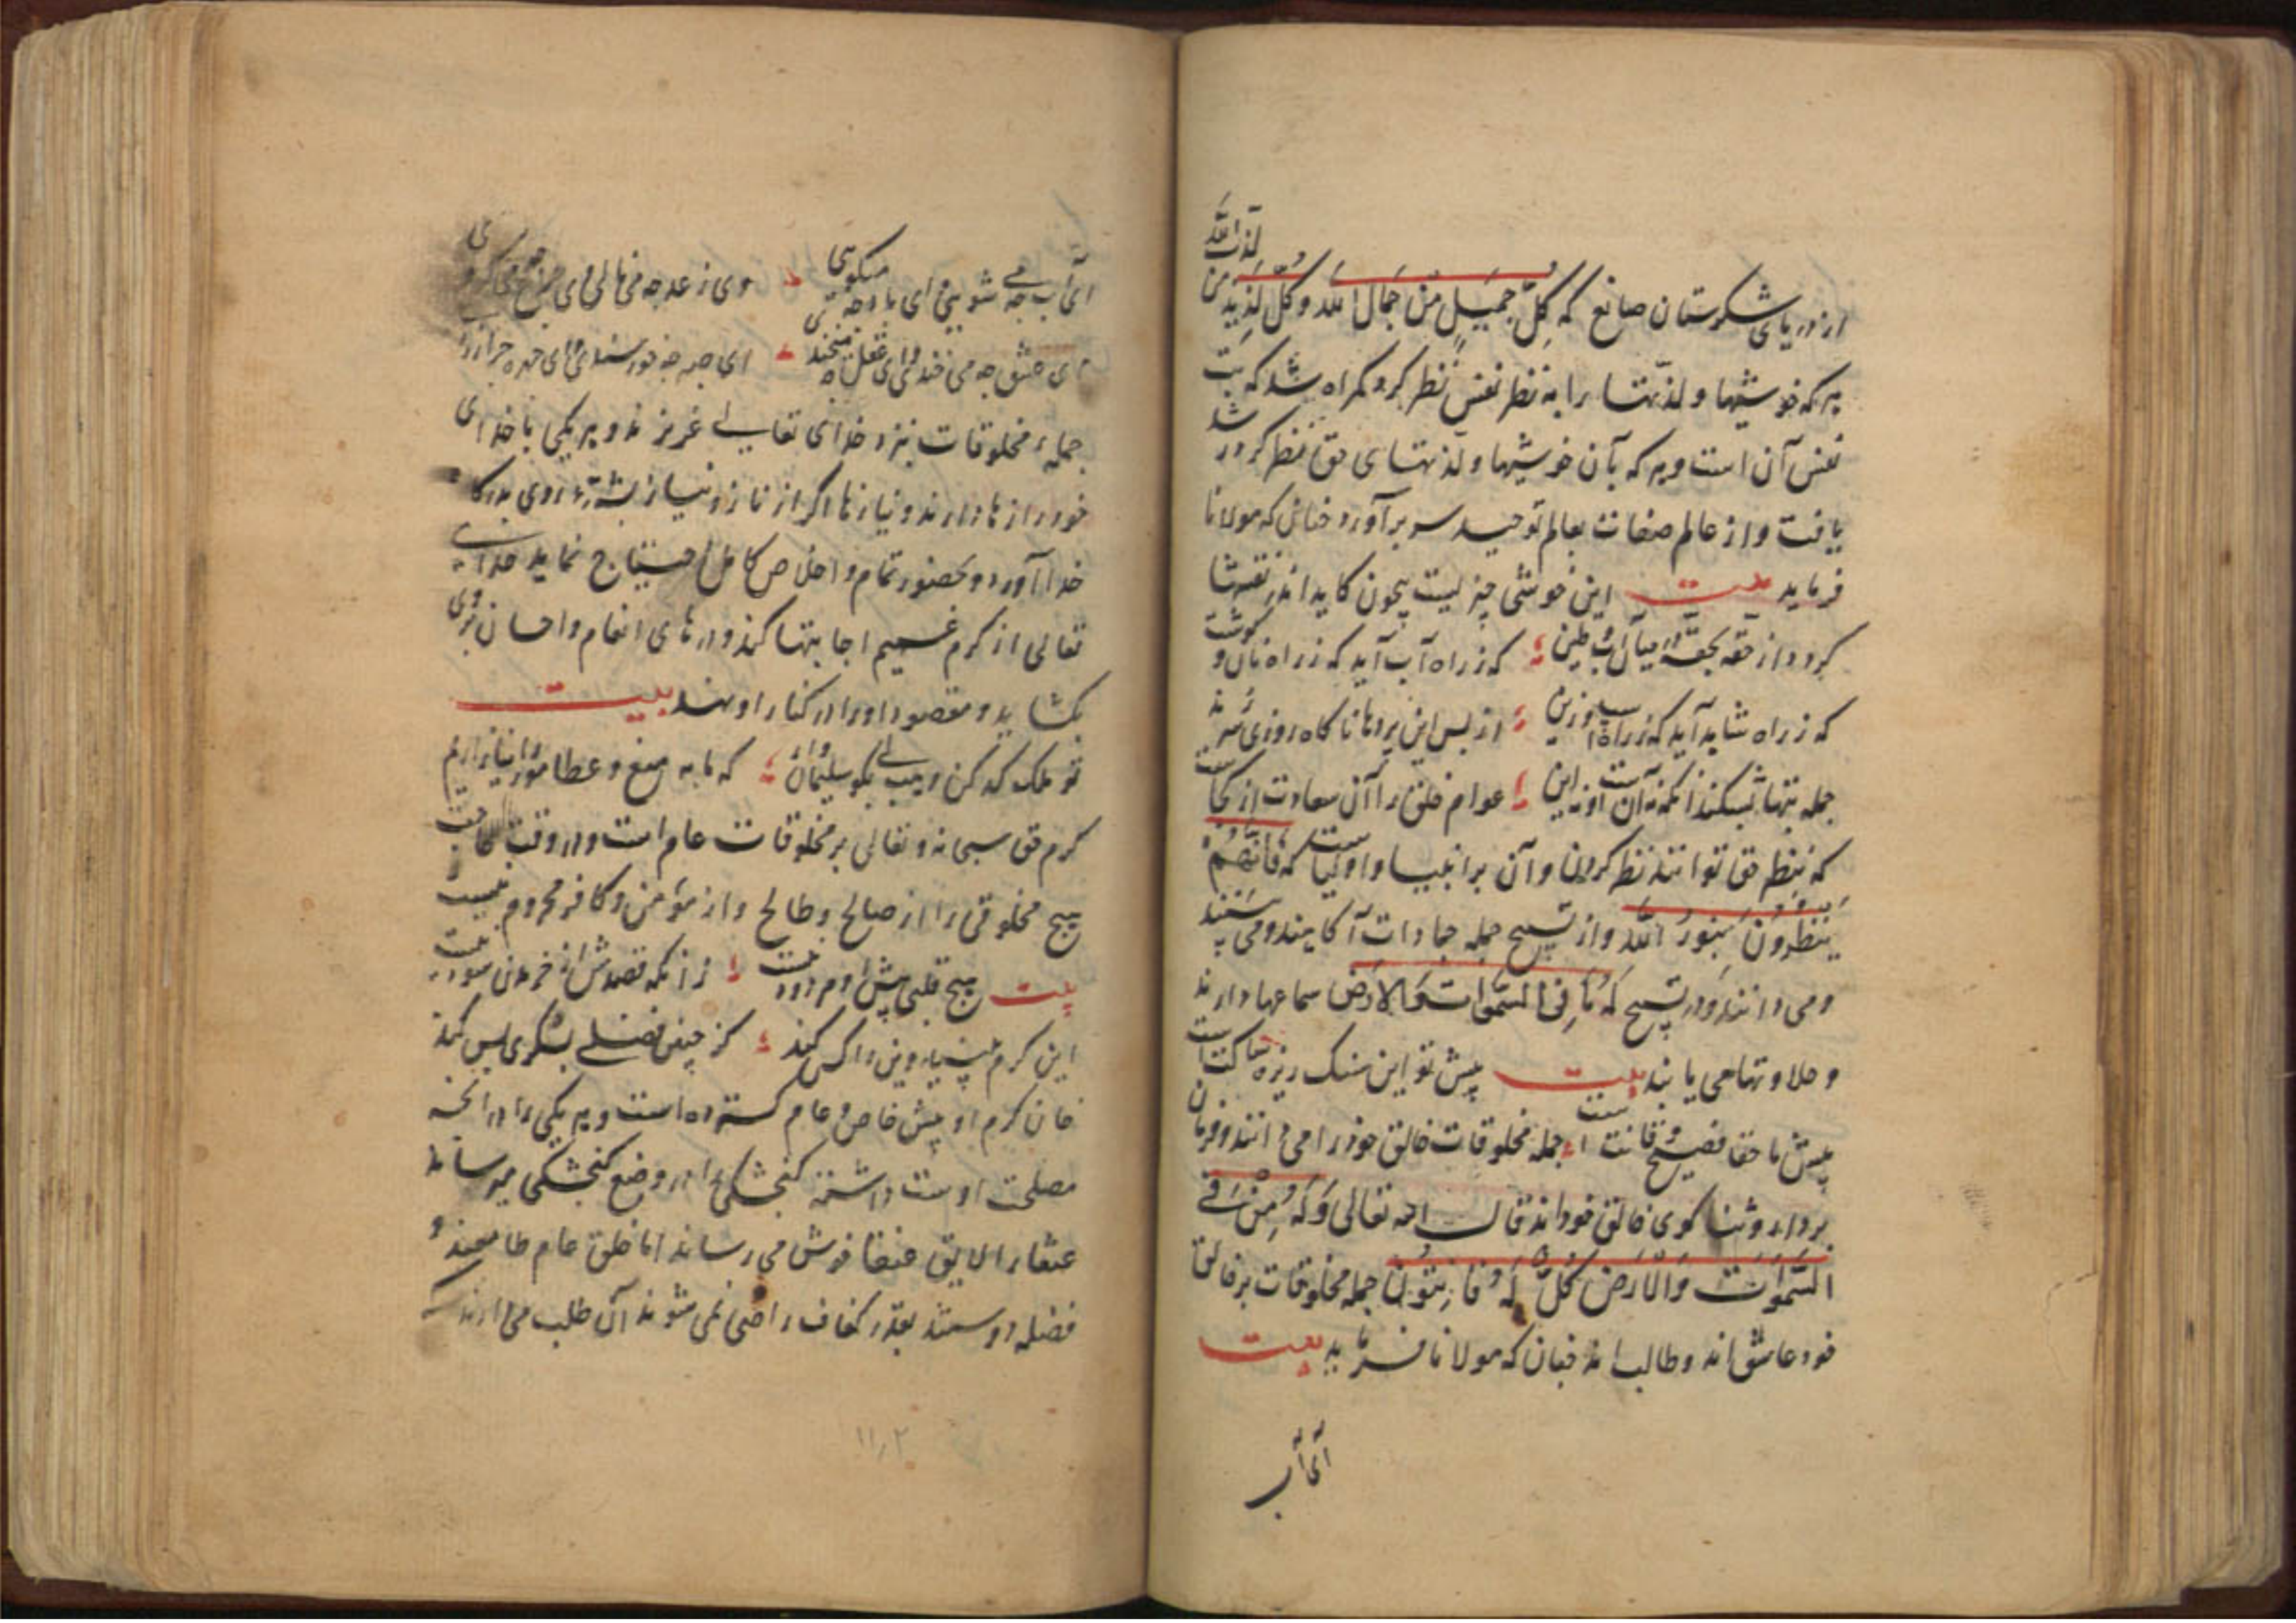 از دریای شکرستان صانع که کُلُّ جَمیلٍ مِن جَمالِ الله وکُلُّ لَذیذٍ مِن لذة الله
هر که خوشیها و لذّتها را به نظر نفس نظر کرد کمراه شد که بت
نفس آن است و هر که بآن خوشیها و لذتهای حق نظر کرد در شد
یافت و از عالم صفات بعالم توحید سر برآورد چنانکه مولانا
فرماید بیت این خوشی چیزیست بیچون کاید اندر نقشها
کردد از حقه بحقه در میان آب و طین که ز راه آب آید که ز راه نان و کوشت
که ز راه شاهد آید که ز راه اسب و زین از پس این پردها ناکاه روزی سر کند
جمله بتها بشکند آنکه نه آن است و نه این عوام خلق را آن سعادت از کجاست
که بنظر حق توانند نظر کردن و آن برا نبیا و اولیاست که فَاِنَّهُم
یَنظُرُونَ بِنُورِ الله و از تسبیح جمله جمادات آکاهند و می شنوند
و می دانند و در تسبیح لَهُ مَا فِی السَّمَوَاتِ وَالاَرض سماعها دارند
و حلاوتها می یابند بیت پیش تو این سنک ریزها ساکت است
پیش ما حقا فصیح و قانت است جمله مخلوقات خالق خود را می دانند و فرمان
بردار و ثنا کوی خالق خوداند قال الله تعالی وَلَهُ مَن فِی
السَّمَوَاتِ وَالاَرضِ کُلٌّ لَهُ قَانِتُونَ جمله مخلوقات بر خالق
خود عاشق اند و طالب اند چنان که مولانا فرماید بیت
ای آب
ای آب چه می شویی وی باد چه می کویی وی رعد چه می نالی وی چرخ چه می کردی
ای عشق چه می خندی وی عقل چه می بندی ای صبر چه خورسندی وی چهره چرا زردی
جمله مخلوقات نزد خدای تعالی عزیزند و هر یکی با خدای
خود رازها دارند و نیازها اکر از ناز و نیاز بشریّت روی بدرکاه
خدا آورد و بحضور تمام و اخلاص کامل احتیاج نماید خدای
تعالی از کرم عمیم اجابتها کند و درهای انعام و احسان بروی
بکشاید و مقصود او را در کنار او نهد بیت
که ما به منع و عطا
کرم حق سبحانه و تعالی بر مخلوقات عام است و در وقت حاجت
هیچ مخلوقی را از صالح و طالح و از مؤمن و کافر محروم نیست
بیت هیچ قلبی پیش او مردود نیست زانکه قصدش از خریدن سود نیست
این کرم کز چنین فضلی بشکری بس کند
خان کرم او پیش خاص و عام کسترده است و هر یکی را در آنچه
مصلحت اوست داشته کنجشکی را در وضع کنجشکی میرساند
عنقا را لایق عنقا قوتش می رساند اما خلق عام طامعند و
فضله دوستند بقدر کفاف راضی نمی شوند آن طلب می دارند که
۱۱۲